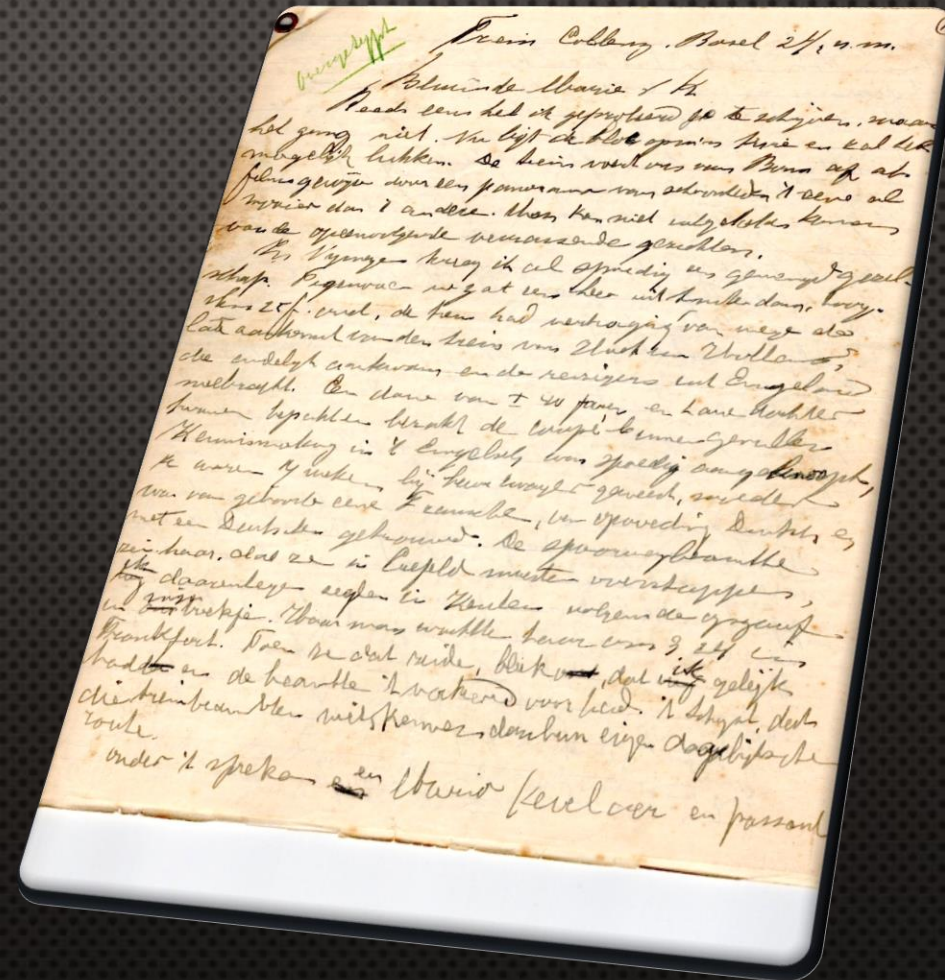 overgetypt
Trein Coblenz. Basel 24/, n.m.
Beminde Marie & K
Reeds eens heb ik geprobeerd je te schrijven, maar
het ging niet. Nu ligt de blok op mijn knie en zal het
mogelijk lukken. De trein voert ons van Bonn af als
filmsgewijze door een panorama van schoonheden 't eene al
mooier dan 't andere. Men kan niet uitgekeken komen
van de opeenvolgende verrassende gezichten.
In Nymegen kreeg ik al spoedig een gemengd gezel-
schap. Tegenover me zat een heer uit Amsterdam,
oud, de trein had vertraging van wege de
late aankomst van den trein van Hoek van Holland,
die eindelijk aankwam en de reizigers uit Engeland
meebracht. Een dame van ± 40 jaar en hare dochter
kwamen bepakt de coupé binnengevallen
Kennismaking in 't Engelsch was spoedig aangeknoopt,
Ze waren 7 weken bij hun zwager geweest, moeder
was van geboorte eene Fransche, van opvoeding Duitsch en
met een Duitscher getrouwd. De spoorwegbeambte
zei haar, dat ze in Crefeld moesten overstappen,
ik daarentegen zeiden in Keulen volgens de opgaaf
in mijn boekje. Haar man wachtte haar om 3 24 in
Frankfort. Toen ze dat zeide, bleek, dat ik gelijk
had en de beambte 't verkeerd voor had. 't Schijnt, dat
die treinbeambten niets kennen dan hun eigen dagelijksche
route.
onder 't spreken en Maria Kevelaer en passant